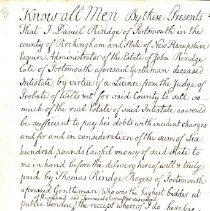 Know all Men By these Presents
That I Daniel Rindge of Portsmouth in the
county of Rockingham and State of New Hampshire
Esquire Administrator of the Estate of John Rindge
late of Portsmouth aforesaid Gentleman deceased
intestate by virtue of a Licence from the Judge of
Probate of Wills &c for said County to sell so
much of the real Estate of said Intestate as would
be sufficient to pay his debts with incident charges
and for and in consideration of the sum of Six
hundred pounds Lawful money of said State to
me in hand before the delivery hereof well & truly
paid by Thomas Rindge Rogers of Portsmouth
aforesaid Gentleman Who was the highest bidder at
public vendue, the receipt whereof I do hereby